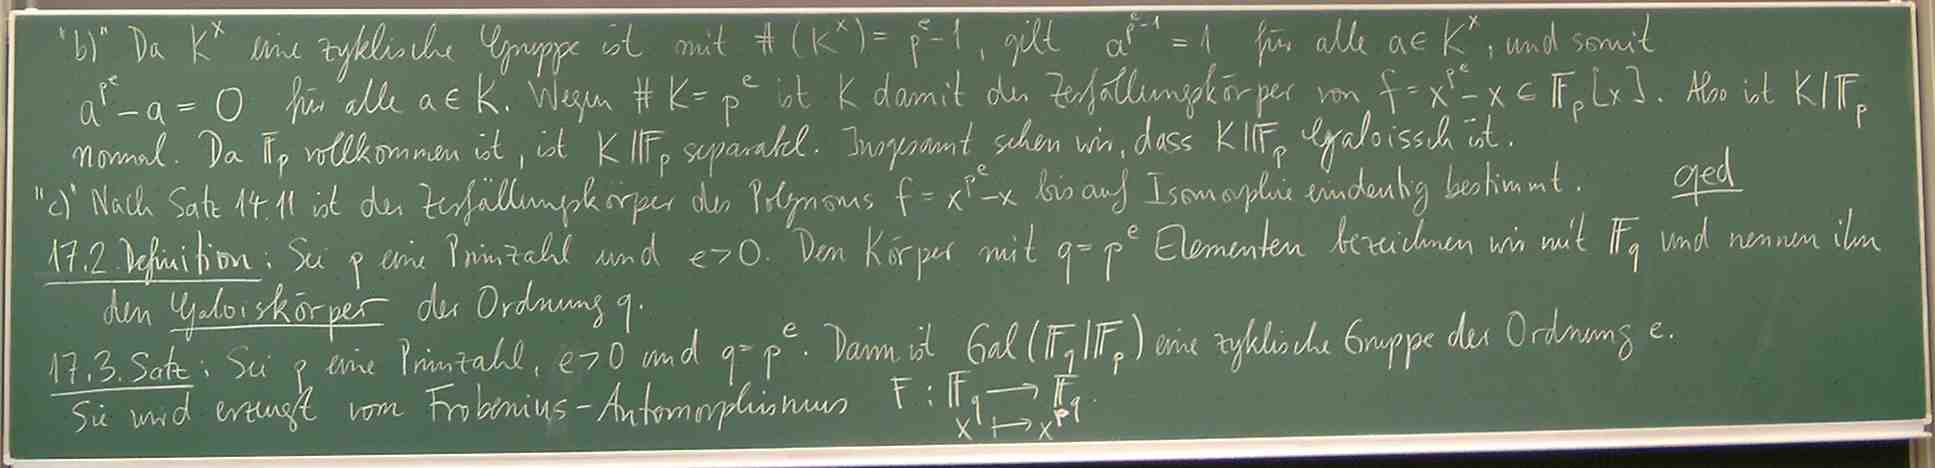 "b)" Da K^× eine zyklische Gruppe ist mit #(K^×) = p^e-1, gilt a^{p^e-1} = 1 für alle a ∈ K^×, und somit
a^{p^e} - a = 0 für alle a ∈ K. Wegen #K = p^e ist K damit der Zerfällungskörper von f = x^{p^e} - x ∈ 𝔽_p[x]. Also ist K|𝔽_p
normal. Da 𝔽_p vollkommen ist, ist K|𝔽_p separabel. Insgesamt sehen wir, dass K|𝔽_p Galoissch ist.
"c)" Nach Satz 14.11 ist der Zerfällungskörper des Polynoms f = x^{p^e} - x bis auf Isomorphie eindeutig bestimmt. qed
17.2. Definition: Sei p eine Primzahl und e>0. Den Körper mit q = p^e Elementen bezeichnen wir mit 𝔽_q und nennen ihn
den Galoiskörper der Ordnung q.
17.3. Satz: Sei p eine Primzahl, e>0 und q = p^e. Dann ist Gal(𝔽_q|𝔽_p) eine zyklische Gruppe der Ordnung e.
Sie wird erzeugt vom Frobenius-Automorphismus F: 𝔽_q → 𝔽_q.
x ↦ x^p